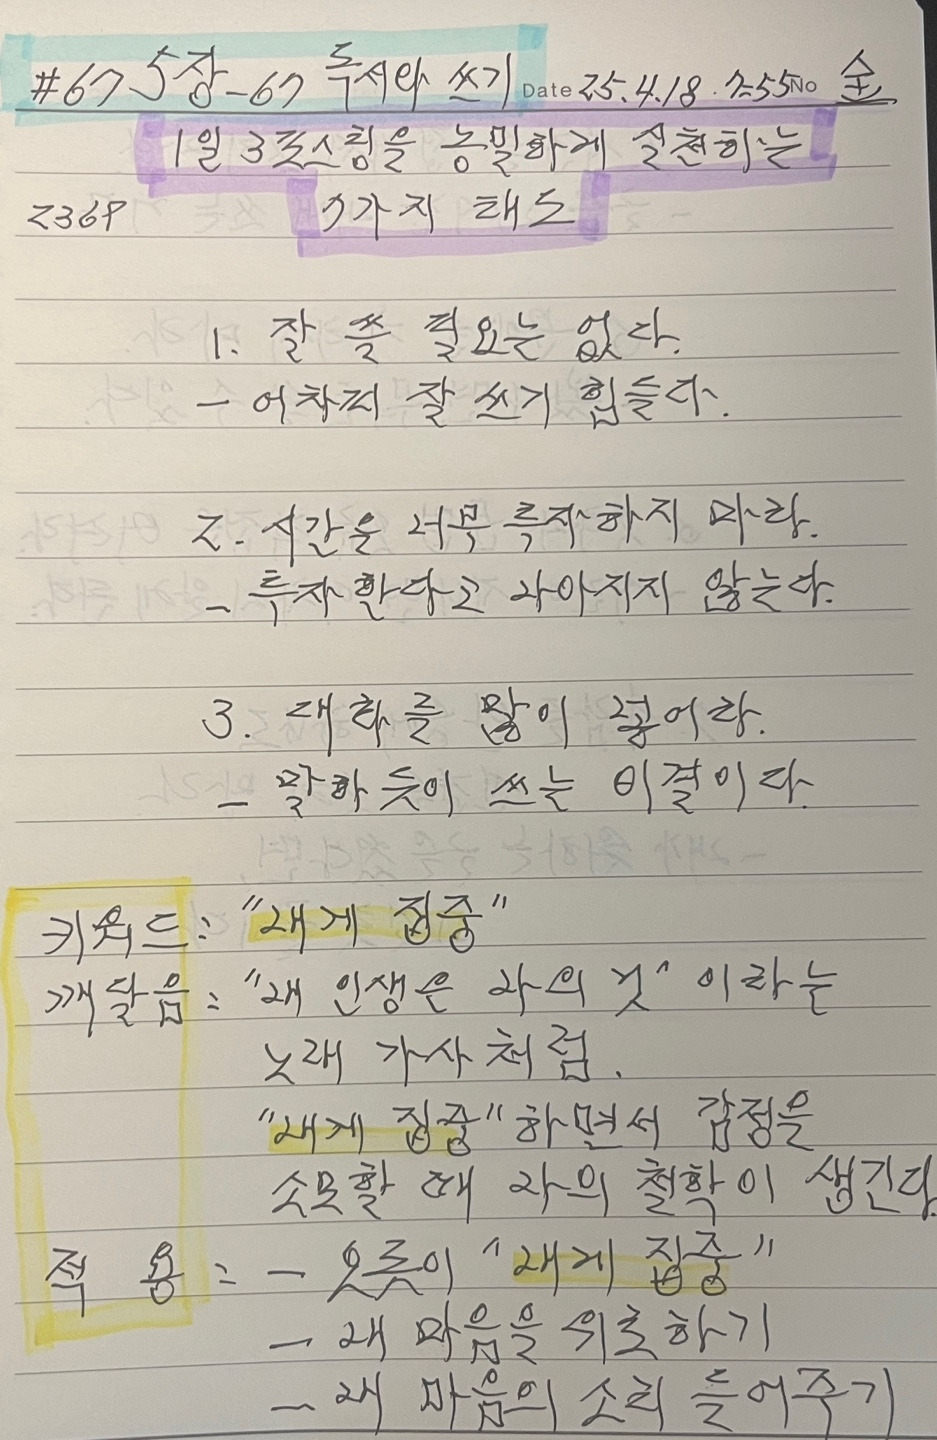 #67 5장-67 독서와 쓰기 Date 25.4.18. 7:55 No 金
1일 3포스팅을 농밀하게 실천하는
236P 7가지 태도
1. 잘 쓸 필요는 없다.
- 어차피 잘 쓰기 힘들다.
2. 시간을 너무 투자하지 마라.
- 투자한다고 나아지지 않는다.
3. 대화를 많이 넣어라.
- 말하듯이 쓰는 비결이다.
키워드 : "내게 집중"
깨달음 : "내 인생은 나의 것" 이라는
노래 가사처럼.
"내게 집중"하면서 감정을
소모할 때 나의 철학이 생긴다.
적 용 : - 오롯이 "내게 집중"
- 내 마음을 위로하기
- 내 마음의 소리 들어주기